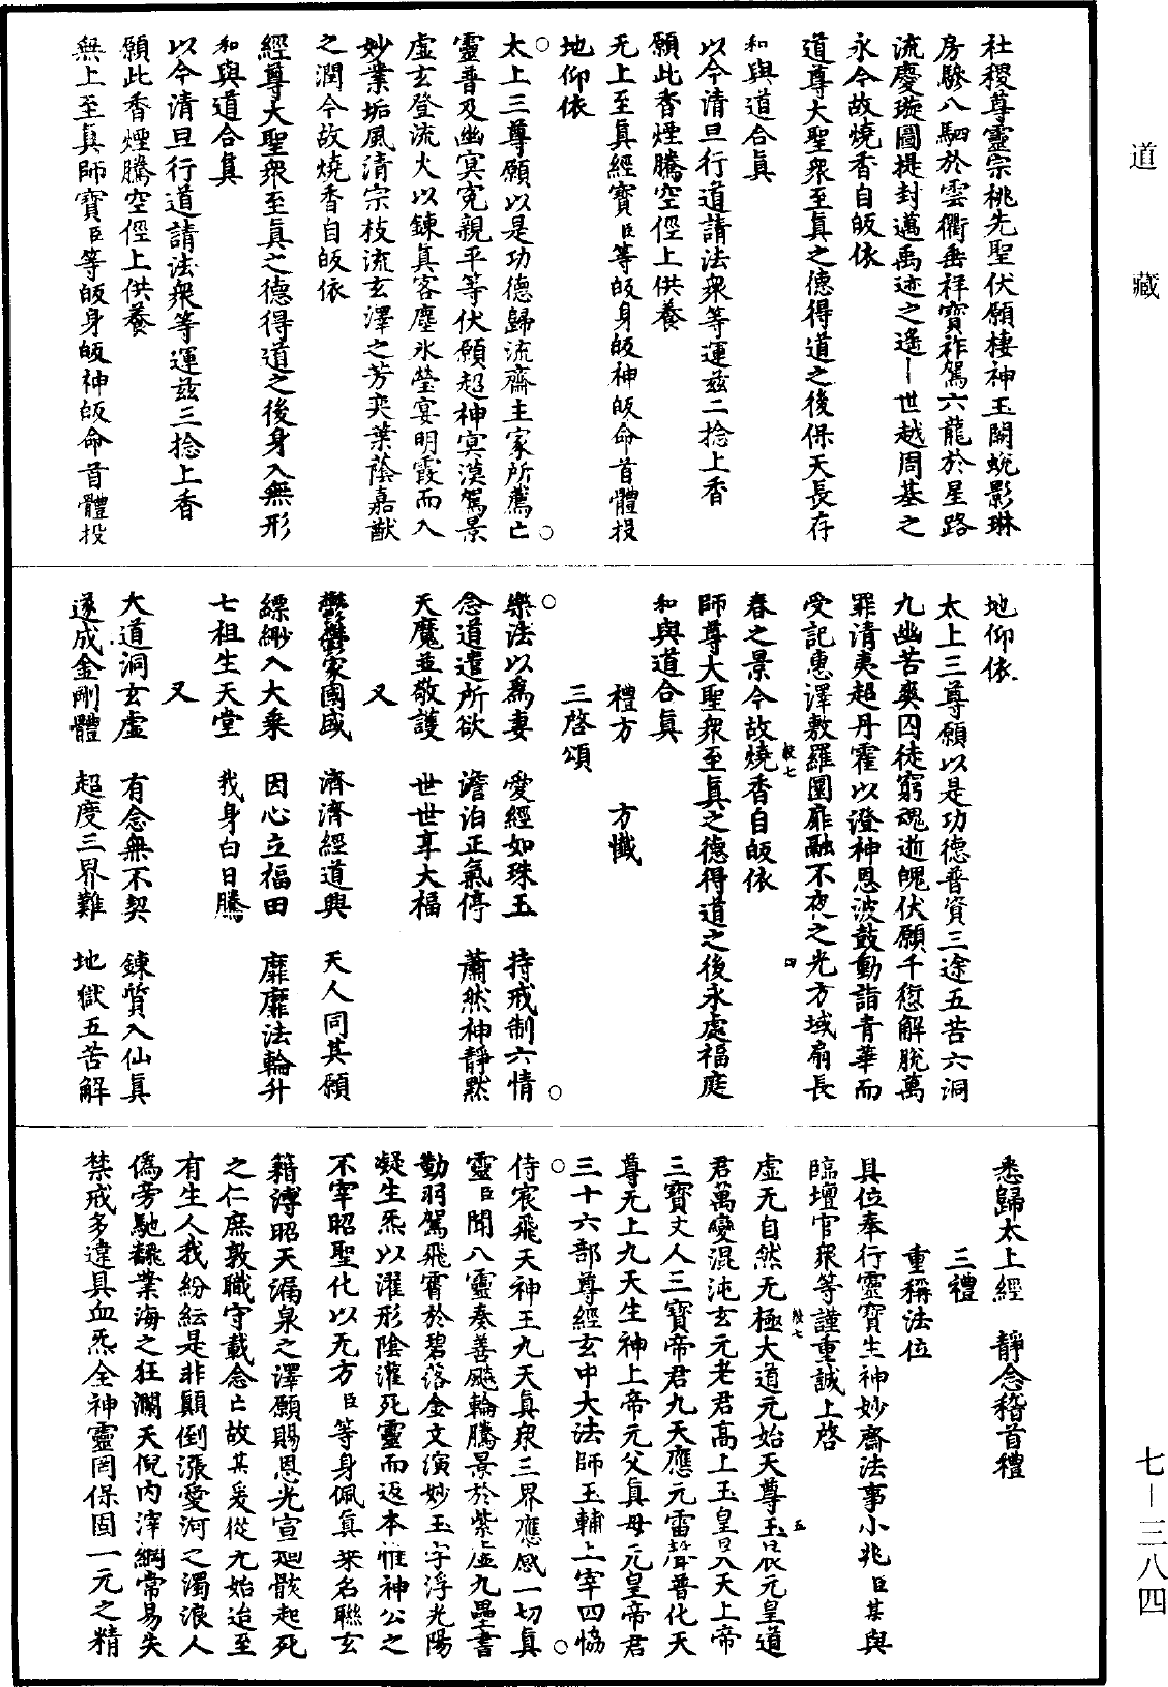 道藏
社稷尊靈宗桃先聖伏願棲神玉闕蛻影琳
房驂八駟於雲衢垂祥寶祚駕六龍於星路
流慶璇圖提封邁禹迹之遙卜世越周基之
永今故燒香自皈依
道尊大聖衆至真之德得道之後保天長存
和與道合真
以今清旦行道請法衆等運茲二捻上香
願此香煙騰空徑上供養
无上至真經寶臣等皈身皈神皈命首體投
地仰依
太上三尊願以是功德歸流齋主家所薦亡
靈普及幽冥寃親平等伏願超神寞漠駕景
虛玄登流火以鍊真客塵氷瑩宴明霞而入
妙業垢風清宗枝流玄澤之芳奕葉蔭嘉猷
之潤今故燒香自皈依
經尊大聖衆至真之德得道之後身入無形
和與道合真
以今清旦行道請法衆等運茲三捻上香
願此香煙騰空徑上供養
無上至真師寶臣等皈身皈神皈命首體投
地仰依
太上三尊願以是功德普資三途五苦六洞
九幽苦爽囚徒窮魂逝魄伏願千愆解脫萬
罪清夷超丹霍以澄神恩波鼓動詣青華而
受記惠澤敷羅圜扉融不夜之光方域扇長
春之景今故燒香自皈依
師尊大聖衆至真之德得道之後永處福庭
和與道合真
禮方　方懺
三啓頌
樂法以爲妻　愛經如珠玉　持戒制六情
念道遣所欲　澹泊正氣停　蕭然神靜黙
天魔並敬護　世世享大福
又
鬱鬱家國盛　濟濟經道興　天人同其願
縹緲入大乘　因心立福田　靡靡法輪升
七祖生天堂　我身白日騰
又
大道洞玄虛　有念無不契　鍊質入仙真
遂成金剛體　超度三界難　地獄五苦解
悉歸太上經　靜念稽首禮
三禮
重稱法位
具位奉行靈寶生神妙齋法事小兆臣某與
臨壇官衆等謹重誠上啓
虛无自然无極大道元始天尊玉晨元皇道
君萬變混沌玄元老君高上玉皇昊天上帝
三寶丈人三寶帝君九天應元雷聲普化天
尊无上九天生神上帝元父真母元皇帝君
三十六部尊經玄中大法師玉輔上宰四恊
侍宸飛天神王九天真衆三界應感一切真
靈臣聞八靈奏善飈輪騰景於紫虛九壘書
勤羽駕飛霄於碧落金文演妙玉字浮光陽
凝生炁以濯形陰灌死靈而返本惟神公之
不宰昭聖化以无方臣等身佩真來名聯玄
籍溥昭天漏泉之澤願賜恩光宣廻骸起死
之仁庶敦職守載念亡故某爰從无始迨至
有生人我紛紜是非顛倒漲愛河之濁浪人
僞旁馳飜業海之狂瀾天倪内滓綱常易失
禁戒多違具血炁全神靈罔保固一元之精
七－三八四